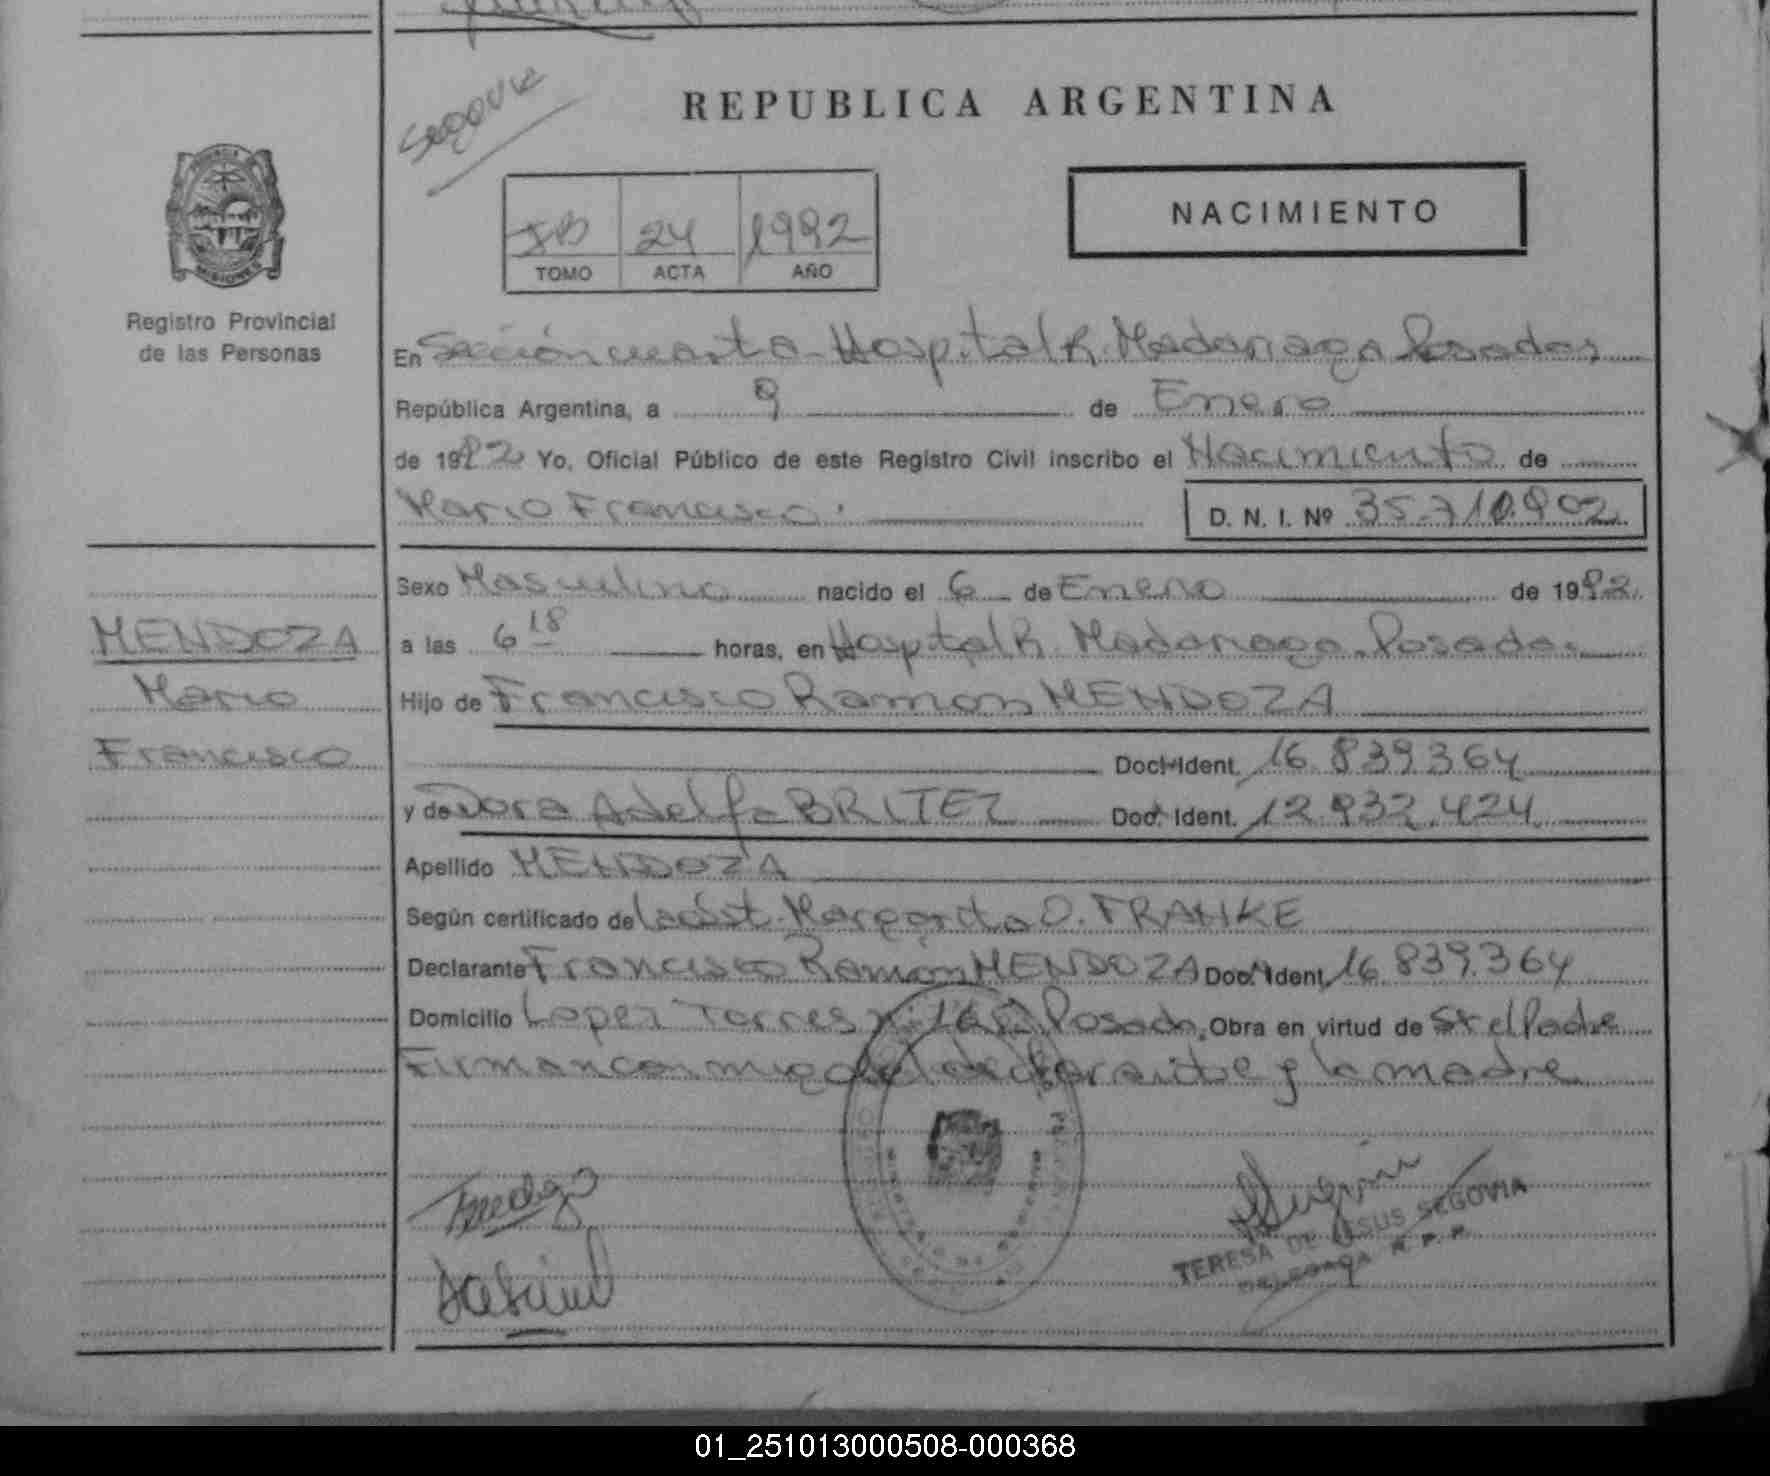 SEGOVIA
REPUBLICA ARGENTINA
24 1992
TOMO ACTA AÑO
NACIMIENTO
MISIONES
Registro Provincial
de las Personas
En Sección cuarta Hospital R. Madariaga Posadas
República Argentina, a 9 de Enero
de 1992 Yo, Oficial Público de este Registro Civil inscribo el Nacimiento de
Mario Francisco
D. N. I. Nº 35.710.902
Sexo Masculino nacido el 6 de Enero de 1992
a las 6 18 horas, en Hospital R. Madariaga. Posadas
Hijo de Francisco Ramon MENDOZA
Doc. Ident. 16.839.364
y de Dora Adelfa BRITEZ Doc. Ident. 12.932.424
Apellido MENDOZA
Según certificado de la obst. Margarita O. FRANKE
Declarante Francisco Ramon MENDOZA Doc. Ident. 16.839.364
Domicilio Lopez Torres Posadas. Obra en virtud de ser el Padre
Firman conmigo el declarante y la madre
MENDOZA
Mario
Francisco
TERESA DE JESUS SEGOVIA
DELEGADA R. P. P.
01_251013000508-000368